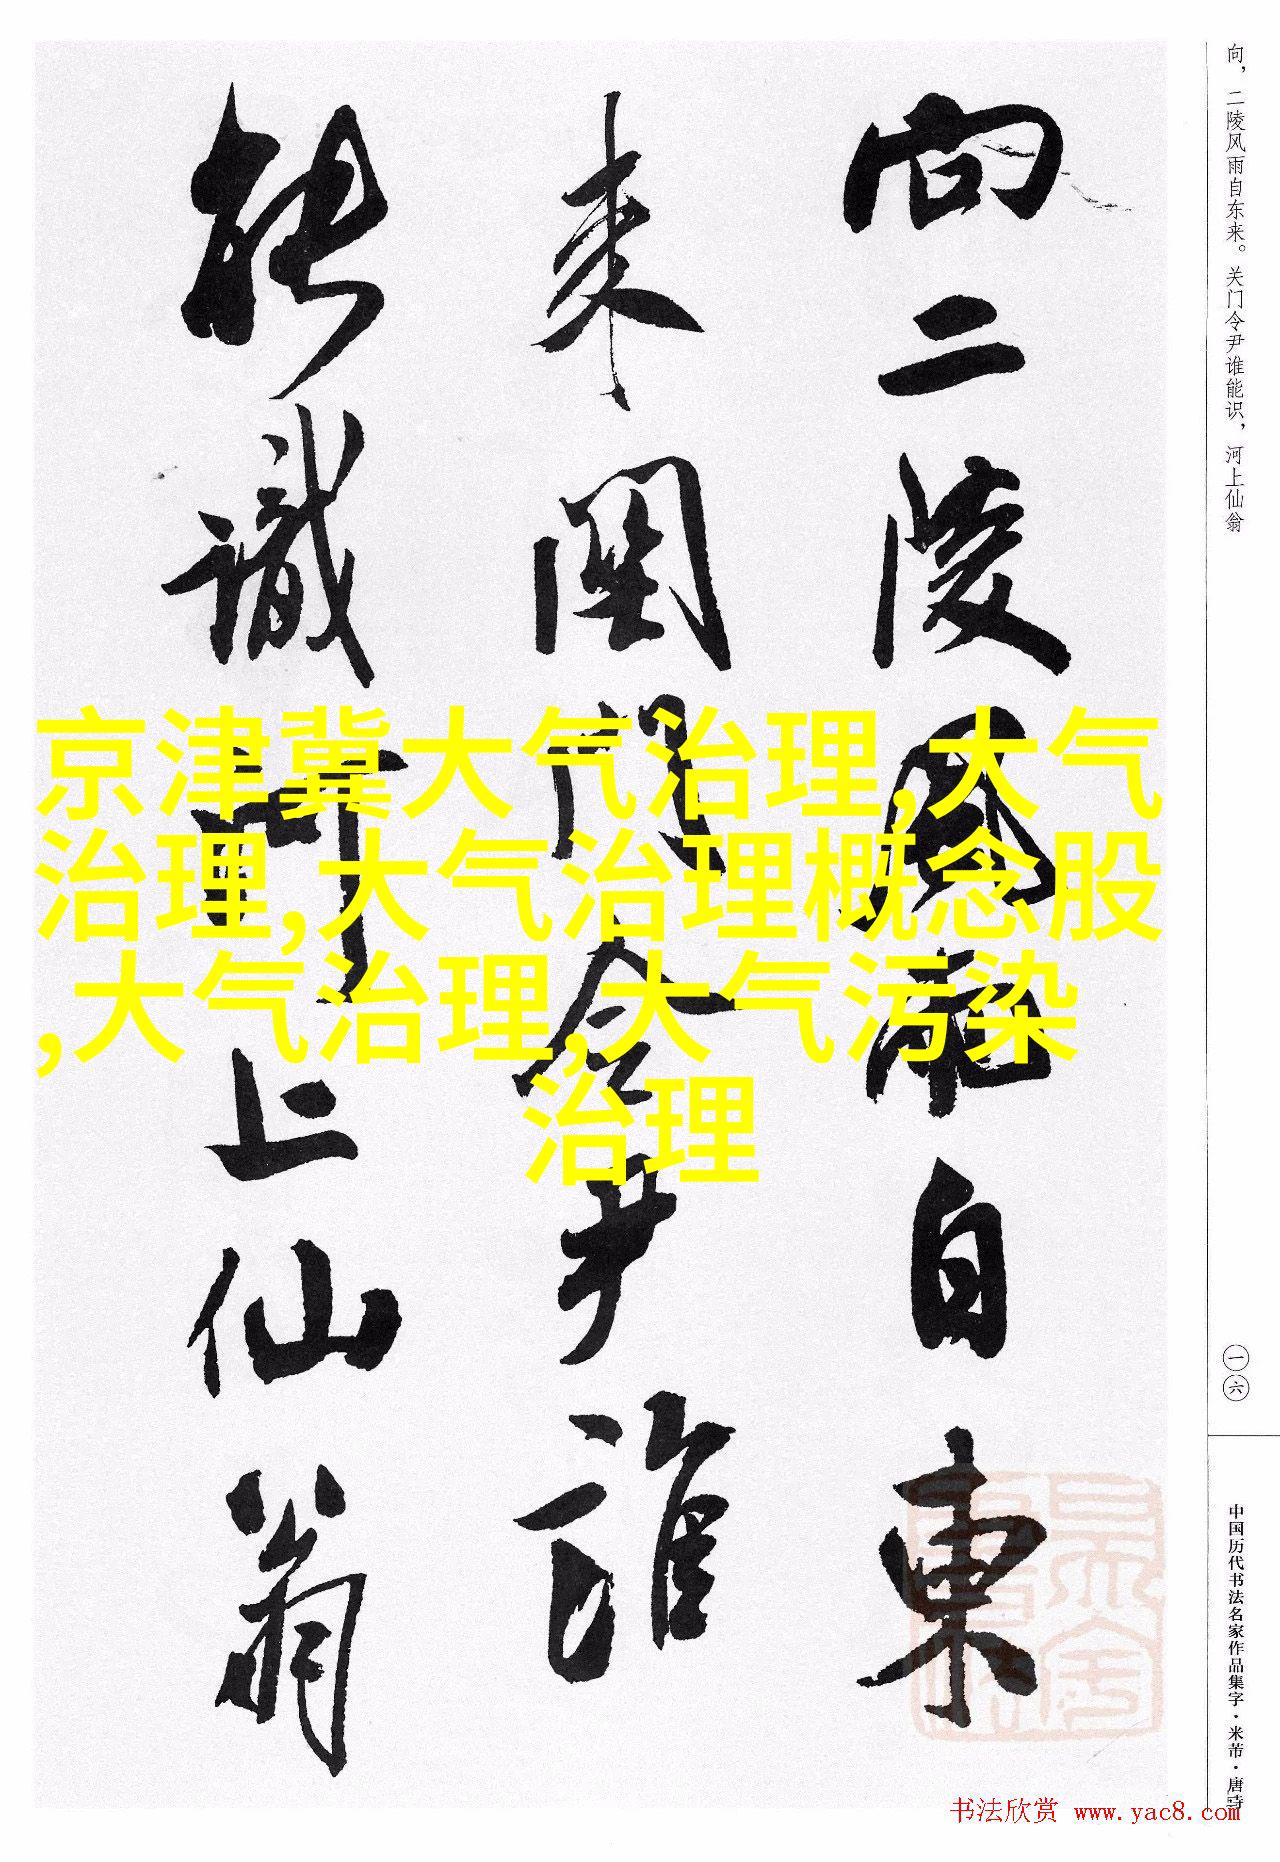 向二陵風雨自東
来關門令尹誰
能識河上仙翁
京津冀大气治理,大气
治理,大气治理概念股
,大气治理,大气污染
治理
向，二陵风雨自东来。关门令尹谁能识，河上仙翁
一六
中国历代书法名家作品集字·米芾·唐诗
书法欣赏 www.yac8.com